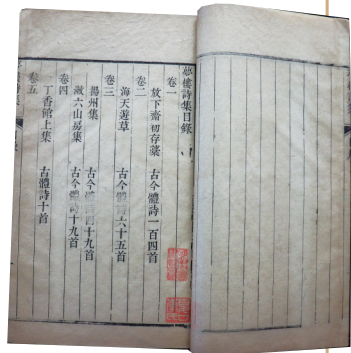 夢樓詩集目錄
卷一
放下齋初存藁 古今體詩一百四首
卷二
海天遊草 古今體詩六十五首
卷三
揚州集 古今體詩四十九首
卷四
歙六山房集 古今體詩十九首
卷五
丁香館上集 古體詩十首